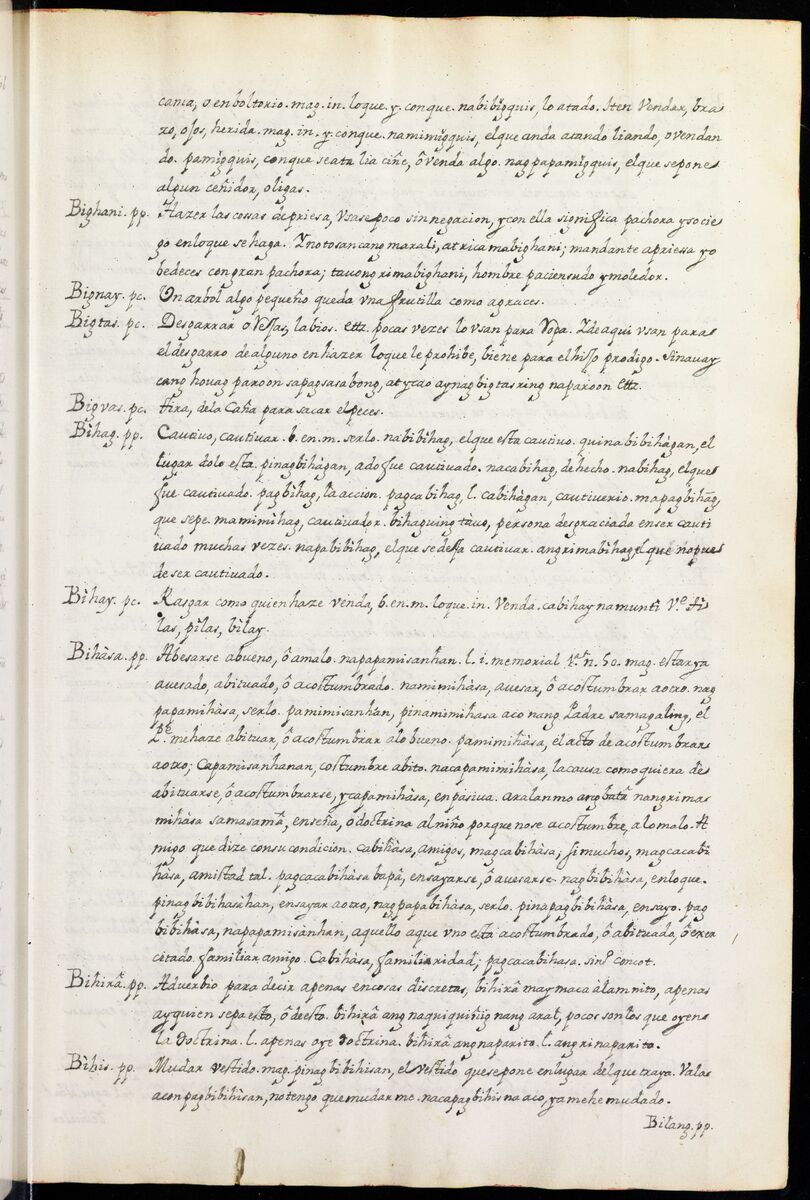 cama, o enboltorio. mag. in. loque. y. conque. nabibigquis, lo atado. Iten Vendar, bra
zo, ojos, herida. mag. in. y. conque. namimigquis, el que anda atando liando, o vendan
do. pamigquis, conque se ata lia ciñe, ô venda algo. nagpapamigquis, el que se pone
algun ceñidor, o ligas.
Bighani. pp. Hazer las cossas de priesa, Vsase poco sin negacion, y con ella significa pachora y socie
go en loque se haga. Ynotosan cang marali, at rica mabighani; mandante apriessa y o
bedeces con gran pachora; tauong rimabighani, hombre paciensudo y moledor.
Bignay. pc. Un arbol algo pequeño que da vna frutilla como agraces.
Bigtas. pc. Desgarrar orejas, labios. Etz. pocas vezes lo vsan para Ropa. Y de aqui vsan para
el desgarro de alguno en hazer loque le prohibe, biene para el hijo prodigo. Sinauay
cang houag paroon sapagsasabong, at ycao ay nagbigtas ring naparoon Etz.
Bigvas. pc. tira, dela Caña para sacar el peces.
Bìhag. pp. Cautivo, cautivar. b. en. m. serlo. nabibìhag, el que esta cautivo. quinabibihàgan, el
lugar dolo esta. pinagbihàgan, ado fue cautivado. nacabihag, de hecho. nabihag, el que
fue cautivado. pagbìhag, la accion. pagcabihag, l. cabihàgan, cautiverio. mapagbihag,
que sepe. mamimìhag, cautivador. bihaguing tàuo, persona desgraciada en ser cauti
uado muchas vezes. napabibìhag, el que se dexa cautivar. ang rimabìhag, el que no pue
de ser cautivado.
Bìhay. pc. Rasgar como quien haze venda, b. en. m. loque. in. Venda. cabihay na munti Ve. ti
las, pilas, bilay.
Bihàsa. pp. Abesarse abueno, ô amalo. napapamisanhan. l. i. memorial n. 50. mag. estar ya
auesado, abituado, ô acostumbrado. namimihàsa, auesar, ô acostumbrar aotro. nag
papamihàsa, serlo. pamimisanhan, pinamimihasa aco nang Padre samagaling, el
Pe. me haze abituar, ô acostumbrar alo bueno. pamimihàsa, el acto de acostumbrar
aotro; Capamisanhanan, costumbre abito. nacapamimihàsa, la causa como quiera de
abituarse, ô acostumbrarse, y capamihàsa, en pasiua. aralan mo ang bata nang rima
mihàsa samasama, enseña, o doctrina al niño porque nose acostumbre, alo malo. A
migo que dize con su condicion. cabihàsa, amigos, magcabihàsa; si muchos, magcacabi
hàsa, amistad tal. pagcacabihàsa bapà, ensayarse, ô auesarse. nagbibihàsa, en loque.
pinagbibihasàhan, ensayar aotro, nagpapabihàsa, serlo. pinapagbibihàsa, ensayo. pag
bibihàsa, napapamisànhan, aquello aque vno esta acostumbrado, ô abituado, ô exer
citado. familiar amigo. Cabihàsa, familiaridad; pagcacabihasa. sino. concot.
Bihirâ. pp. Aduerbio para decir apenas en cosas discretas, bihirâ may maca àlam nito, apenas
ay quien sepa esto, ô de esto. bihirâ ang naquiquinig nang aral, pocos son los que oyen
la doctrina. l. apenas oye doctrina. bihirâ ang naparito. l. ang rinaparito.
Bìhis. pp. Mudar vestido. mag. pinagbibihisan, el vestido que se pone en lugar del que traya. Vala
acon pagbibihìsan, no tengo que mudar me. nacapagbihis na aco, ya me he mudado.
Bilang. pp.